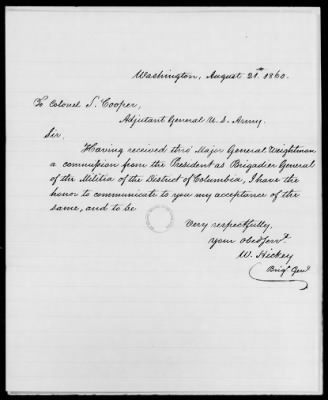 Washington, August 21st 1860.
To Colonel S. Cooper,
Adjutant General U. S. Army.
Sir.
Having received thro' Major General Weightman
a commission from the President as Brigadier General
of the Militia of the District of Columbia, I have the
honor to communicate to you my acceptance of the
same, and to be
Very respectfully,
Your obed. Servt.
W. Hickey
Brigr. Genl.